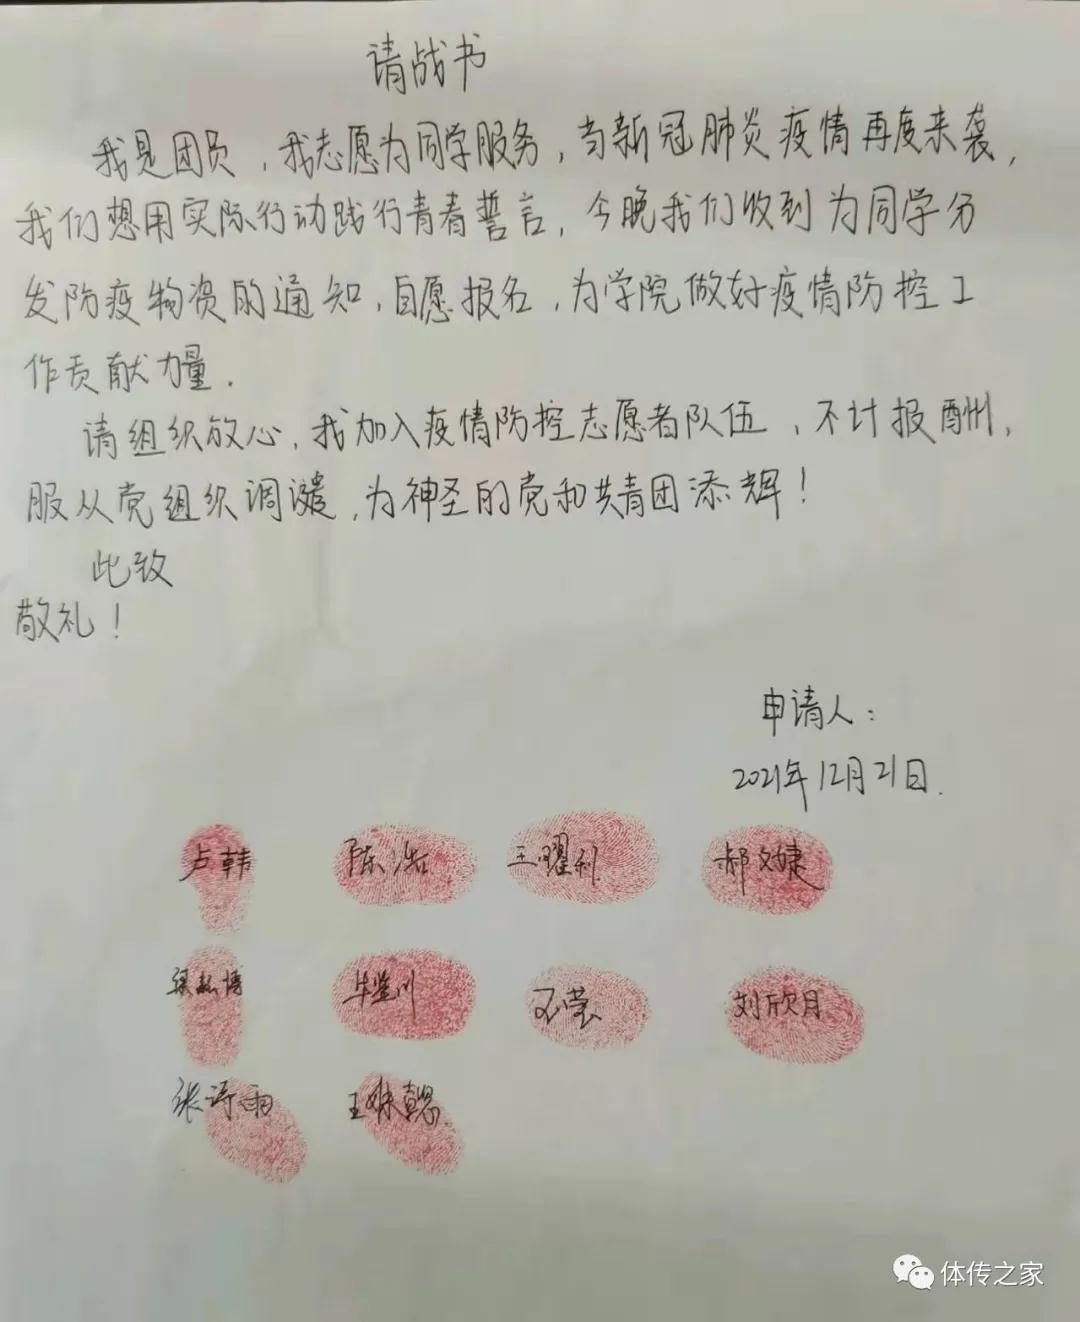 请战书
我是团员，我志愿为同学服务，当新冠肺炎疫情再度来袭，
我们想用实际行动践行青春誓言，今晚我们收到为同学分
发防疫物资的通知，自愿报名，为学院做好疫情防控工
作贡献力量．
请组织放心，我加入疫情防控志愿者队伍，不计报酬，
服从党组织调遣，为神圣的党和共青团添辉！
此致
敬礼！
申请人：
2021年12月21日．
卢韩 陈浩 王曜利 郝文婕
梁 博 牟 川 王莹 刘欣月
张诗雨 王姝懿
体传之家